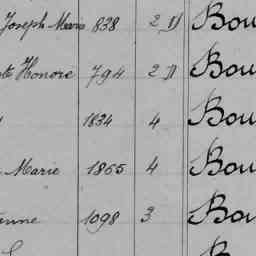 Joseph Marie 838 2 D Bou
Honoré 794 2 D Bou
1834 4 Bou
Marie 1865 4 Bou
1098 3 Bou